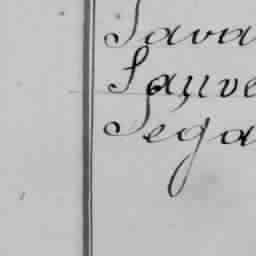 Sava
Sauve
Sega